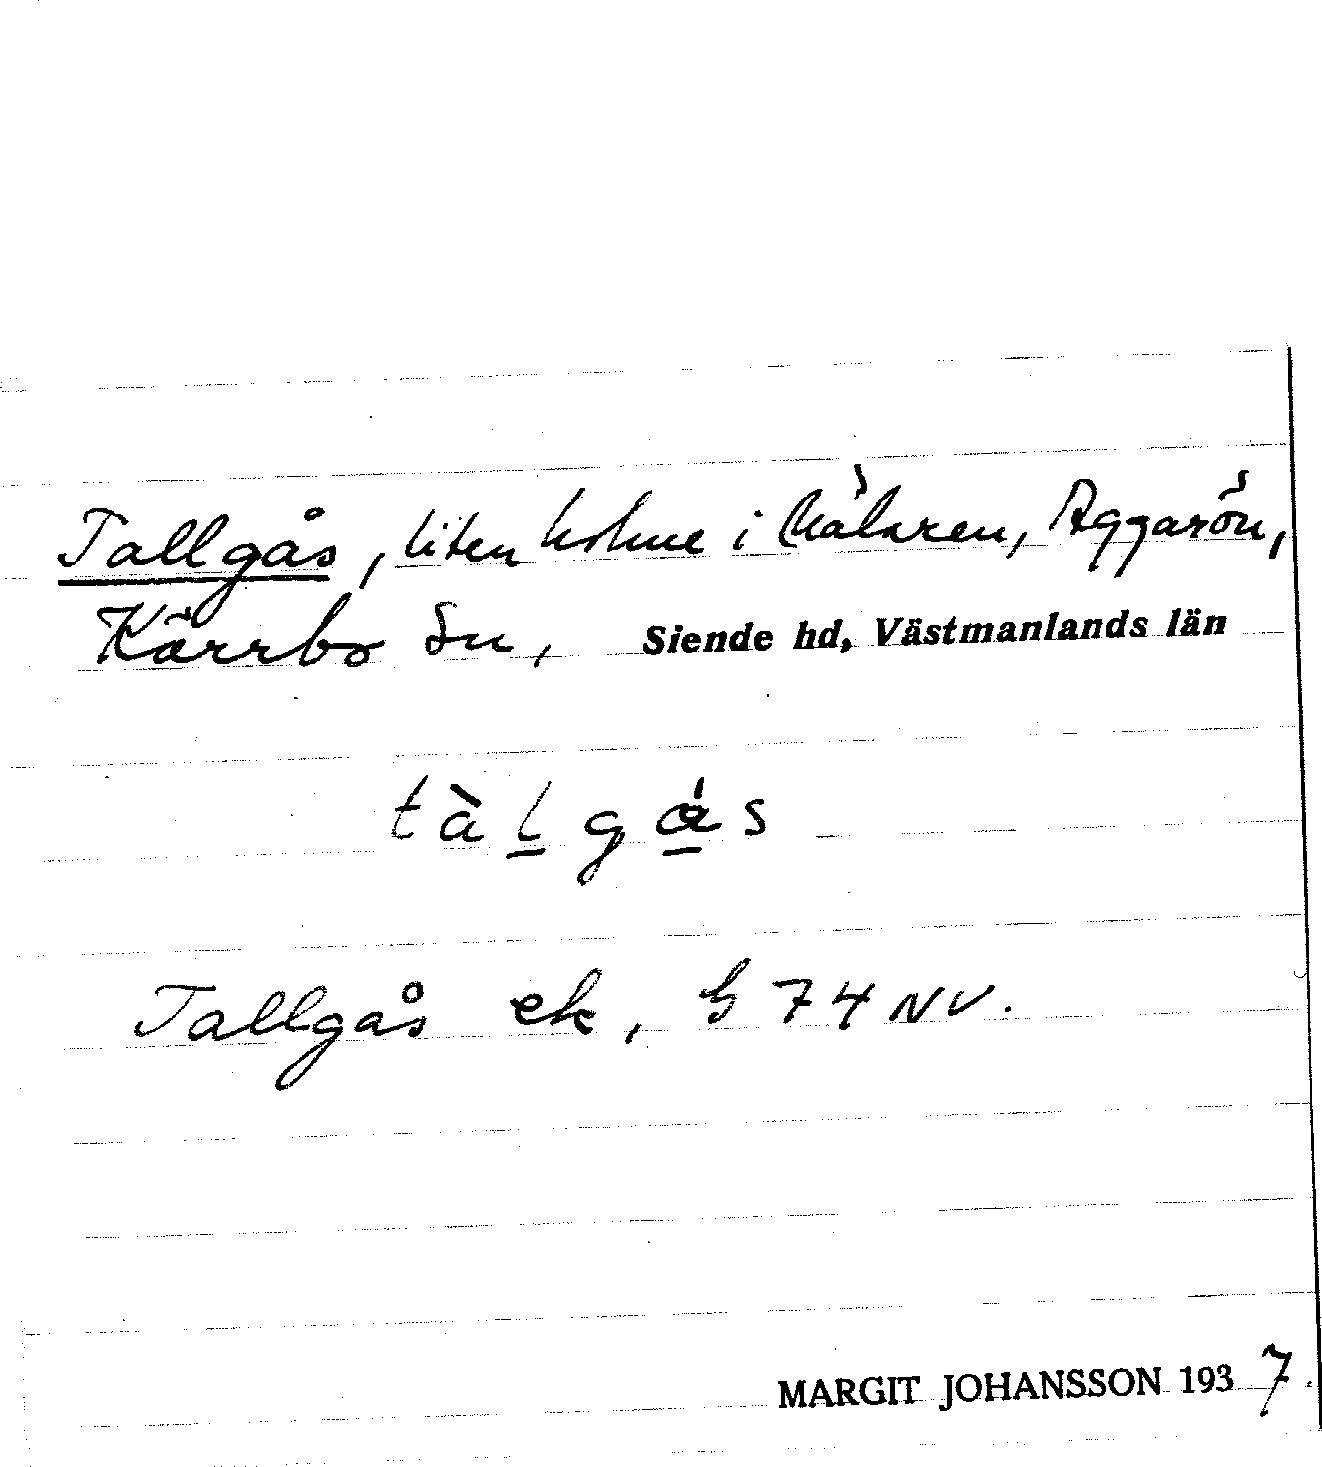 Tallgås, liten holme i Mälaren, Aggarön,
Kärrbo sn, Siende hd, Västmanlands län
tàl̲gá̲s
Tallgås ek, G 74 NV.
MARGIT JOHANSSON 1937.